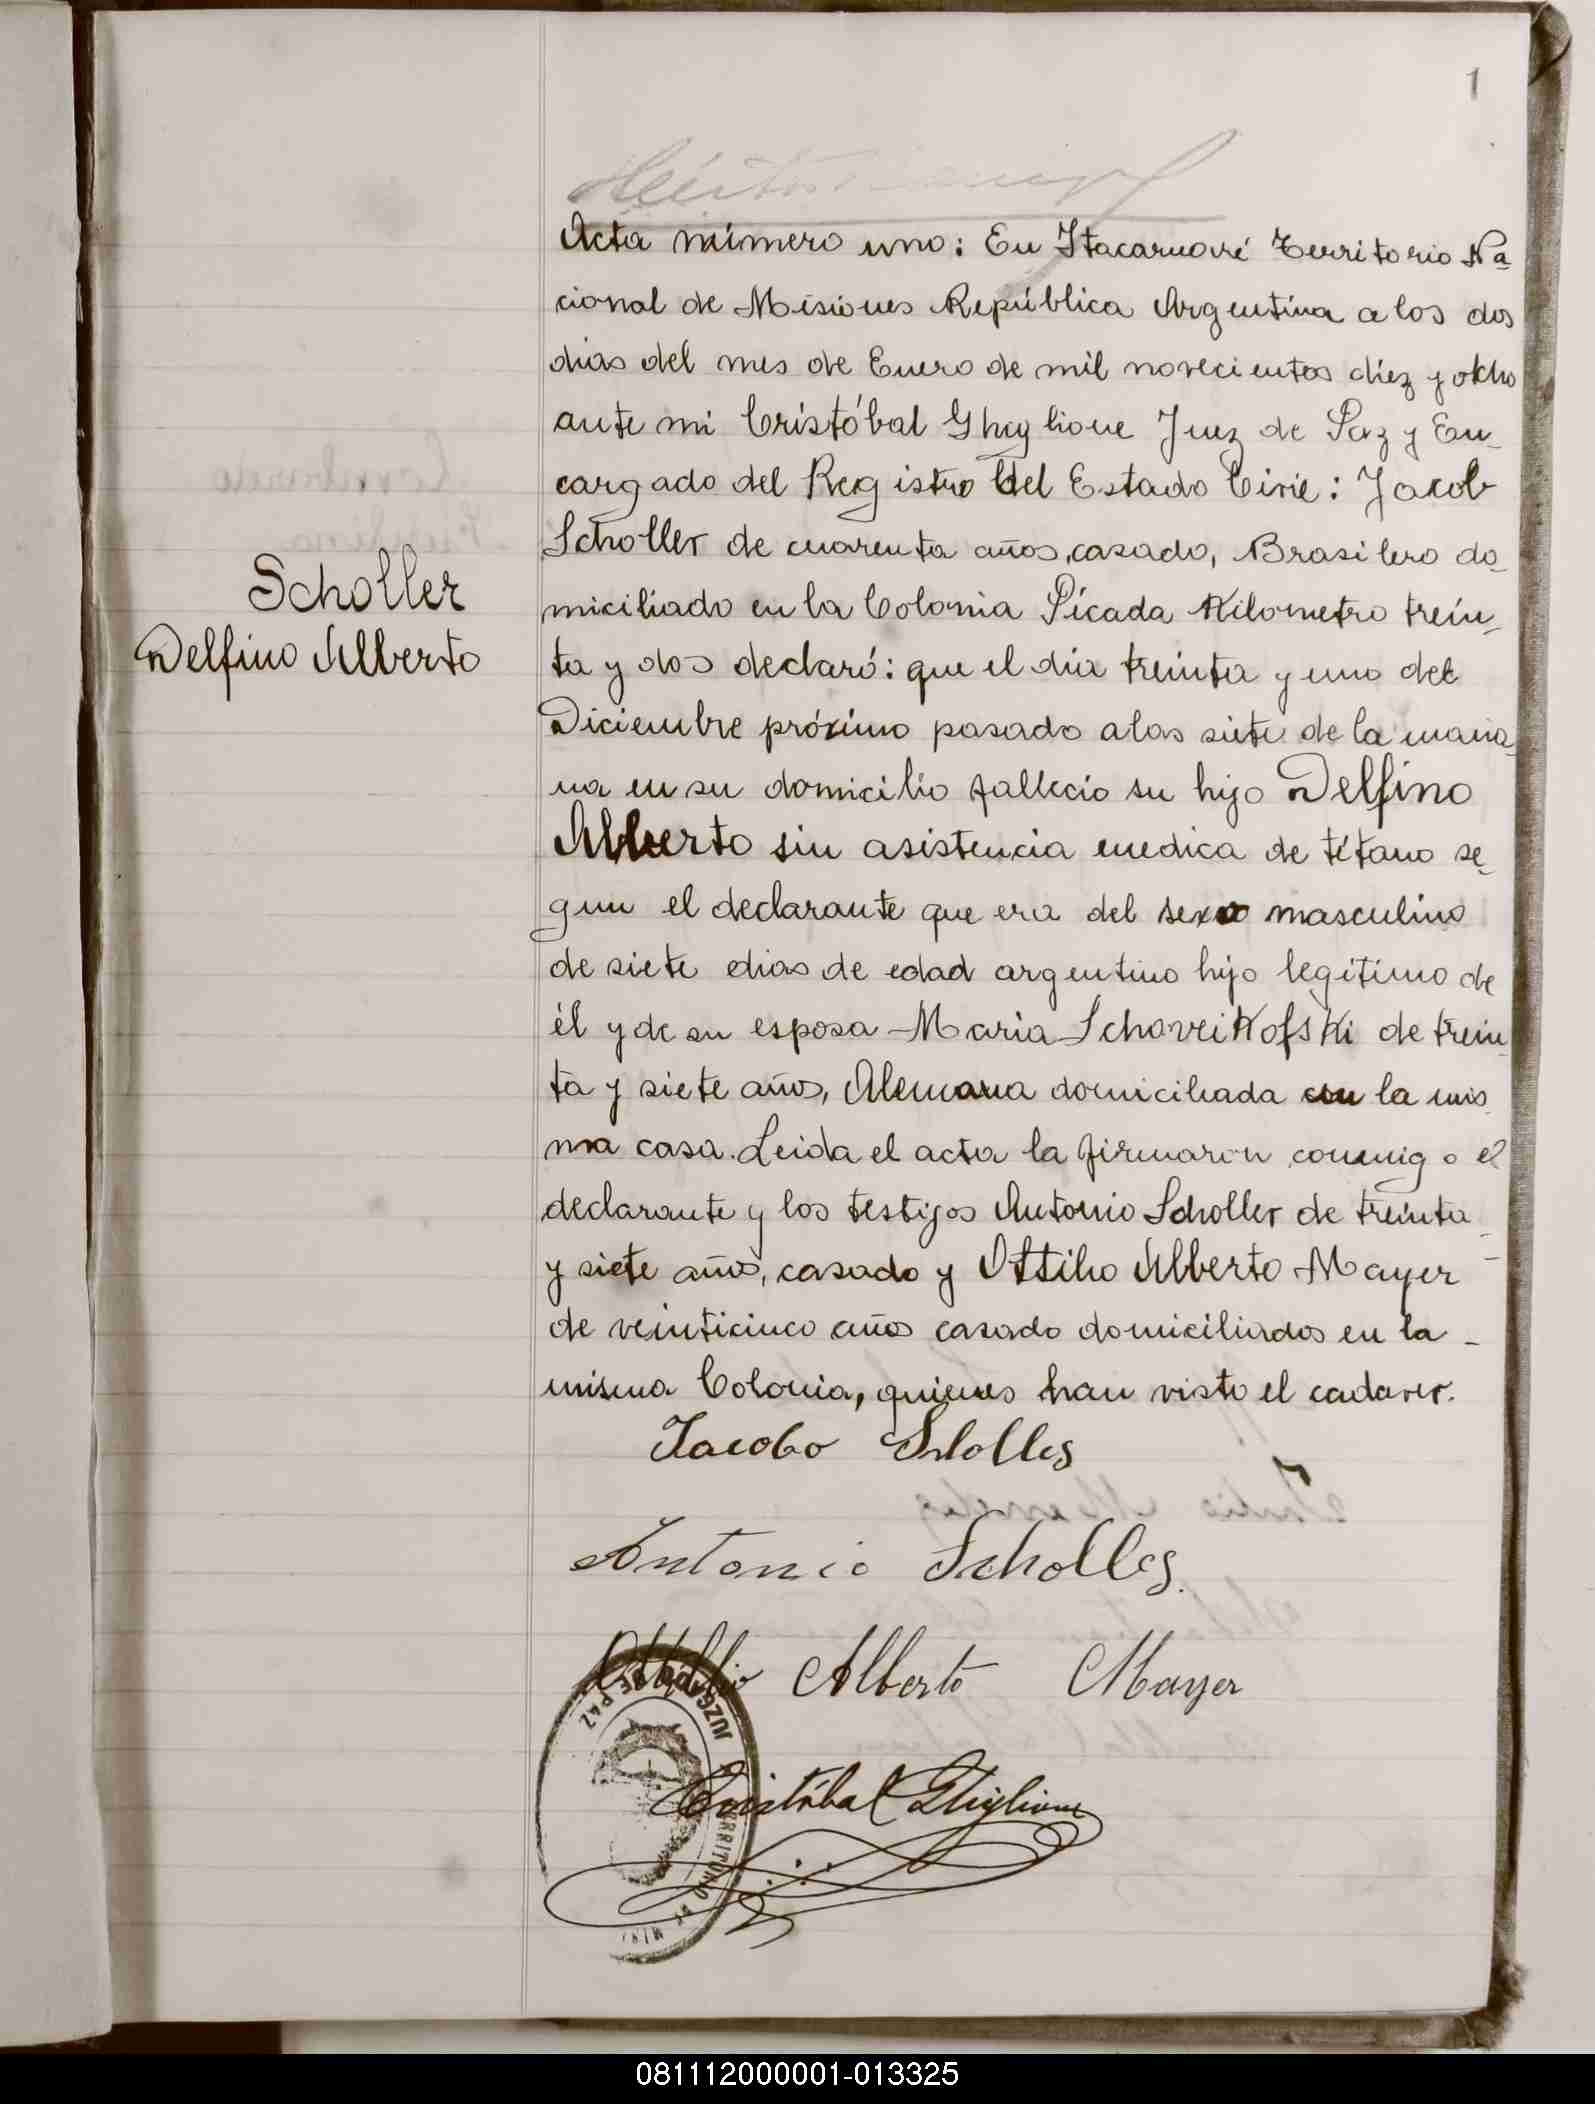 1
Acta número uno: En Itacaruaré Territorio Na-
cional de Misiones República Argentina a los dos
dias del mes de Enero de mil novecientos diez y ocho
ante mi Cristóbal Ghiglione Juez de Paz y En-
cargado del Registro del Estado Civil: Jacob
Scholler de cuarenta años, casado, Brasilero do-
miciliado en la Colonia Picada Kilometro trein-
Scholler
Delfino Alberto
ta y dos declaró: que el dia treinta y uno del
Diciembre próximo pasado a las siete de la maña-
na en su domicilio fallecio su hijo Delfino
Alberto sin asistencia medica de tétano se-
gun el declarante que era del sexo masculino
de siete dias de edad argentino hijo legítimo de
él y de su esposa Maria Schoveikofski de trein-
ta y siete años, Alemana domiciliada con la mis-
ma casa. Leida el acta la firmaron conmigo el
declarante y los testigos Antonio Scholler de treinta
y siete años, casado y Ottilio Alberto Mayer
de veinticinco años casado domiciliados en la
misma Colonia, quienes han visto el cadaver.
Jacobo Scholles
Antonio Scholles.
Ottilio Alberto Mayer
JUZGADO DE PAZ
Cristóbal Ghiglione
TERRITORIO DE MISI
081112000001-013325